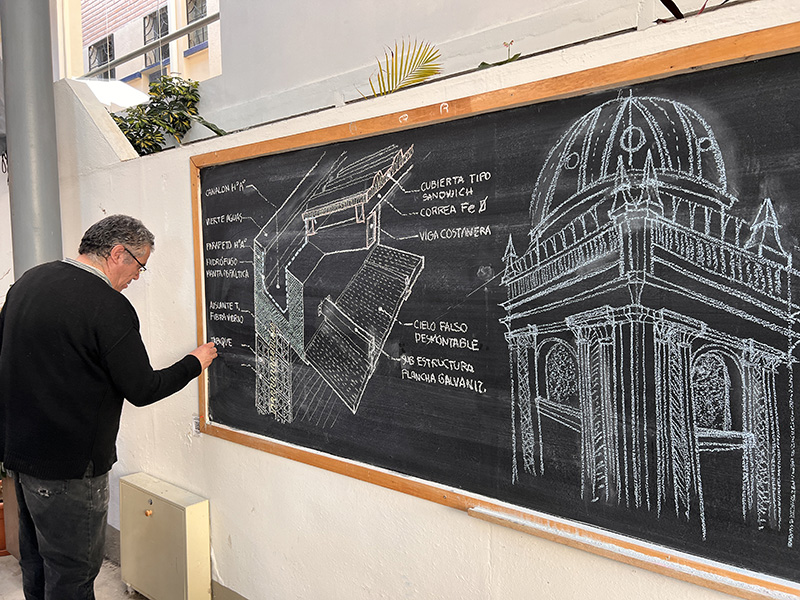 CANALON HºAº
VIERTE AGUAS
PARAPETO HºAº
HIDRÓFUGO
MANTA ASFÁLTICA
AISLANTE T.
FIBRA VIDRIO
TABIQUE
CUBIERTA TIPO
SANDWICH
CORREA Fe
VIGA COSTANERA
CIELO FALSO
DESMONTABLE
SUB ESTRUCTURA
PLANCHA GALVANIZ.